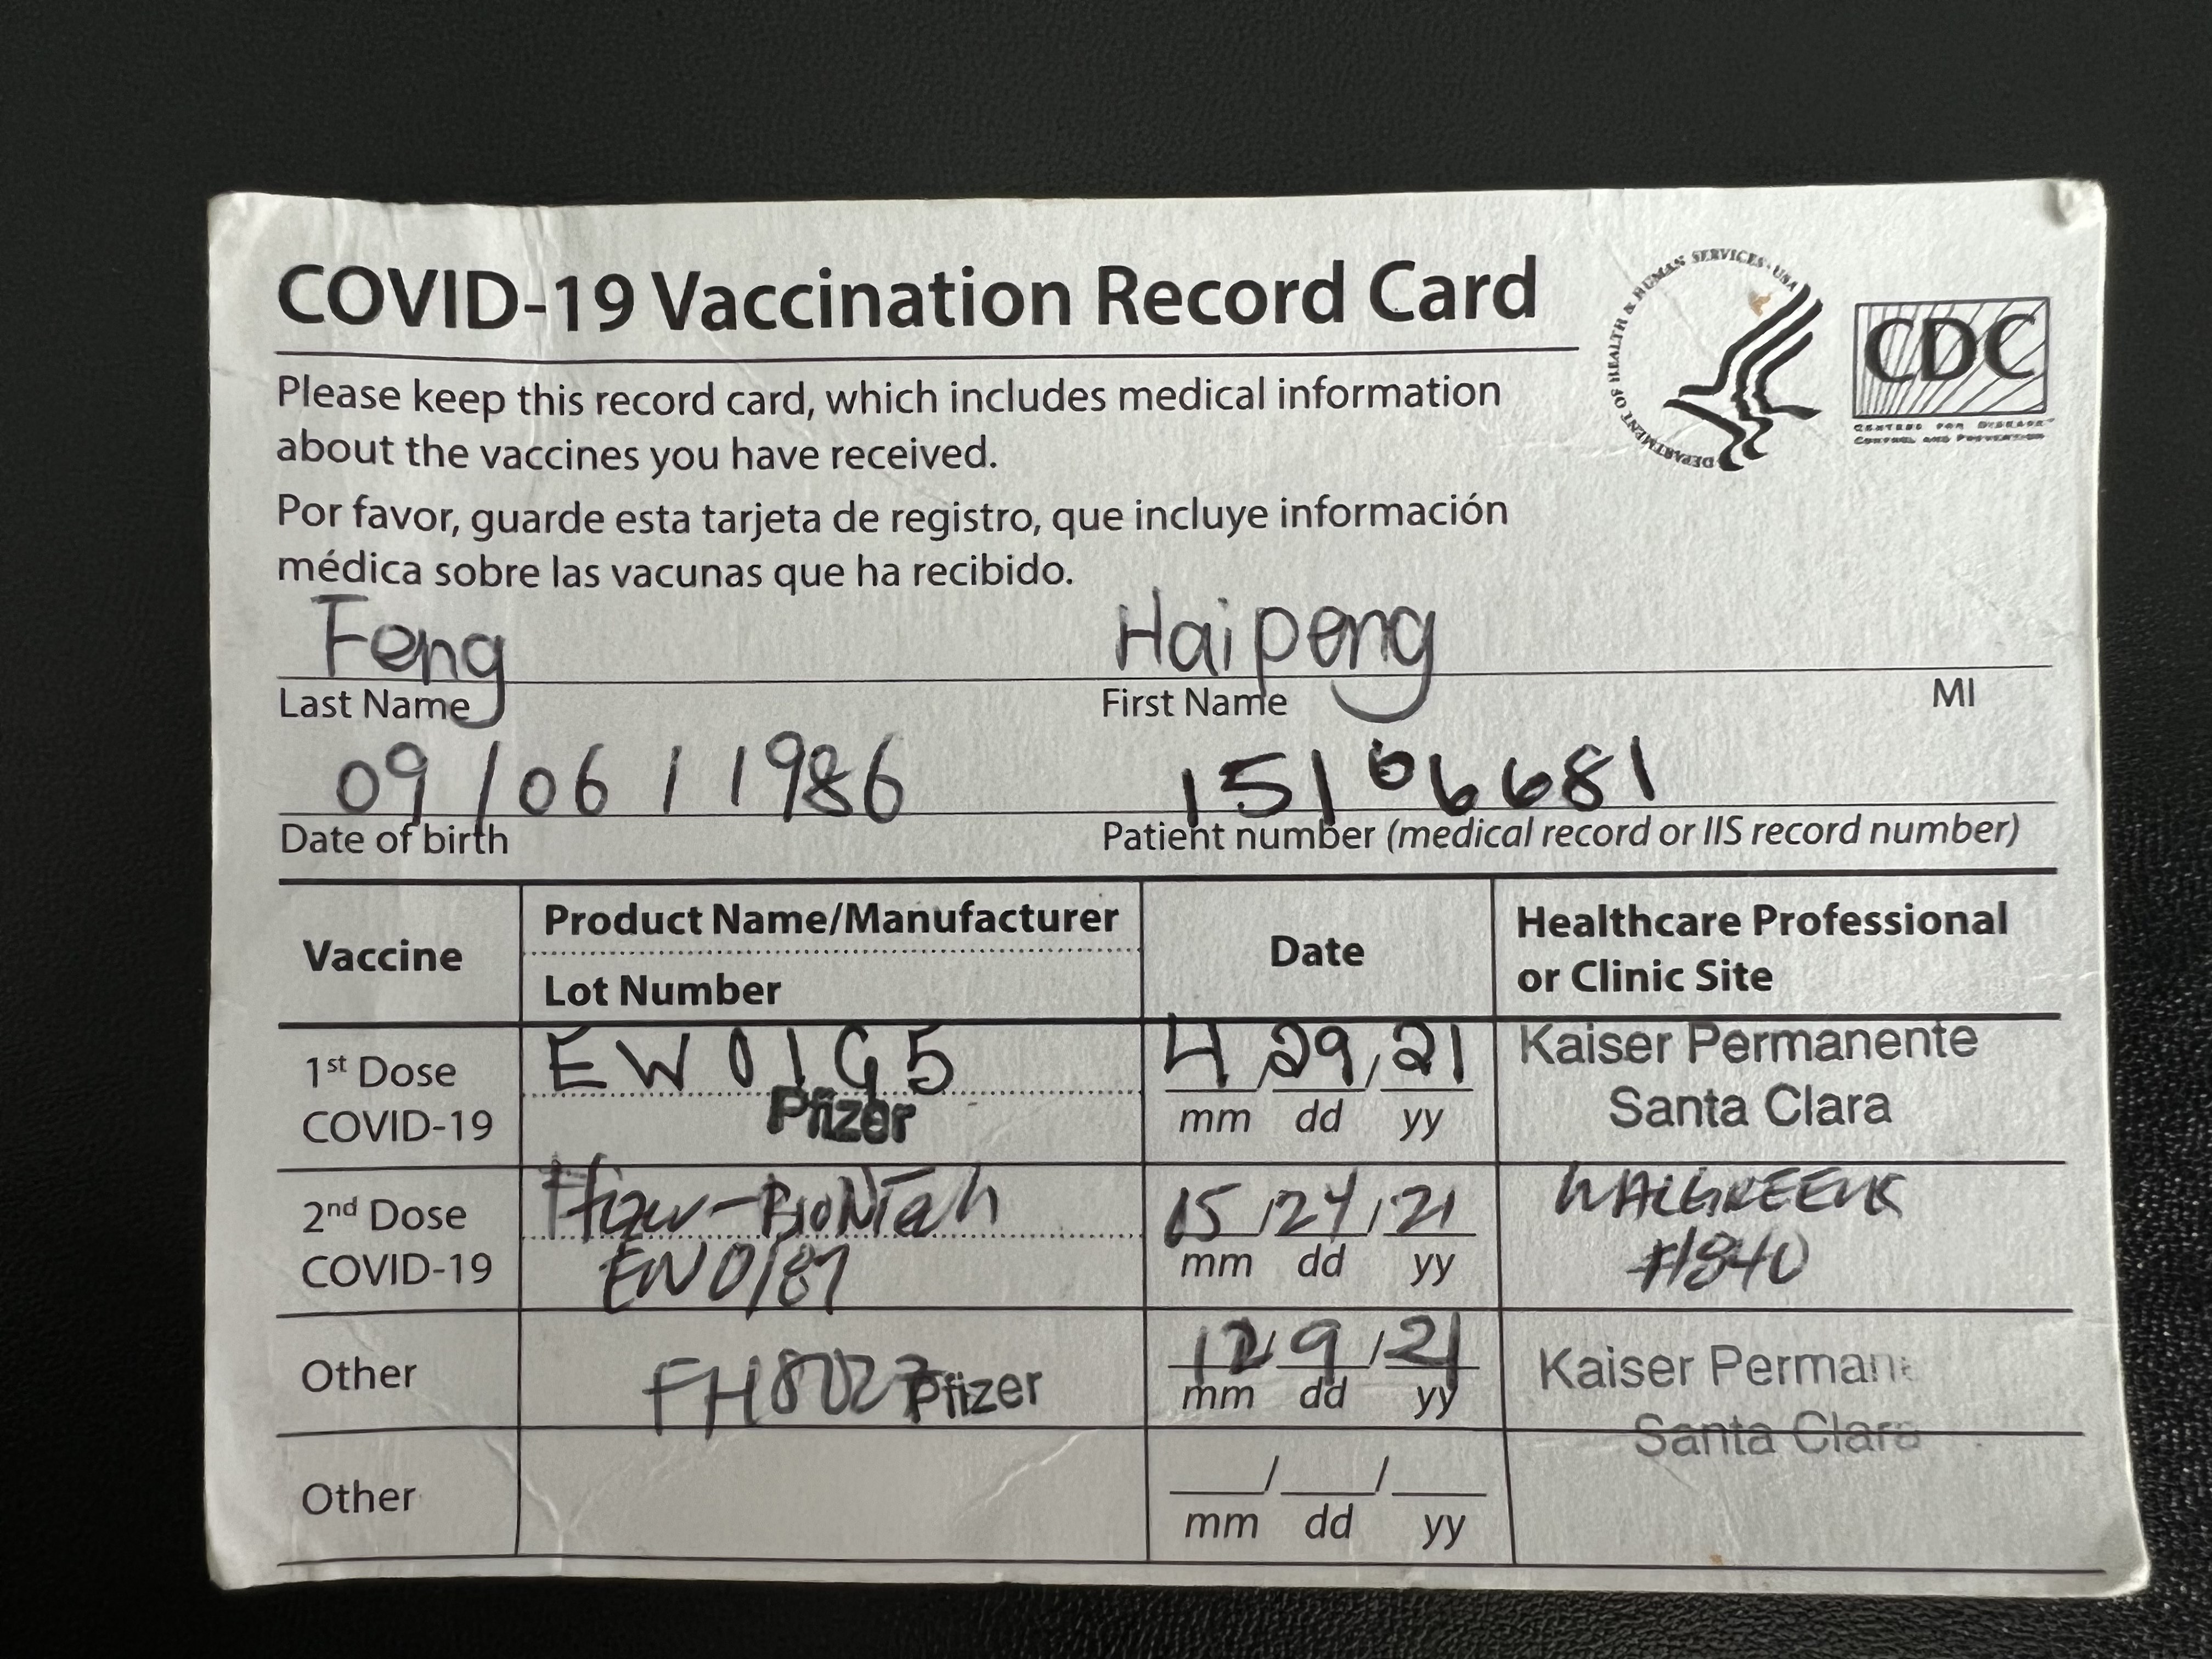 COVID-19 Vaccination Record Card
DEPARTMENT OF HEALTH & HUMAN SERVICES·USA
CDC
CENTERS FOR DISEASE
CONTROL AND PREVENTION
Please keep this record card, which includes medical information
about the vaccines you have received.
Por favor, guarde esta tarjeta de registro, que incluye información
médica sobre las vacunas que ha recibido.
Feng Haipeng
Last Name First Name MI
09/06/1986 15106681
Date of birth Patient number (medical record or IIS record number)
Vaccine
Product Name/Manufacturer
Lot Number
Date
Healthcare Professional
or Clinic Site
1st Dose
COVID-19
Pfizer
4/29/21
mm dd yy
Kaiser Permanente
Santa Clara
2nd Dose
COVID-19
/24/21
mm dd yy
WALGREENS
Other
Pfizer
12/9/21
mm dd yy
Kaiser Perman
Santa Clara
Other
/ /
mm dd yy